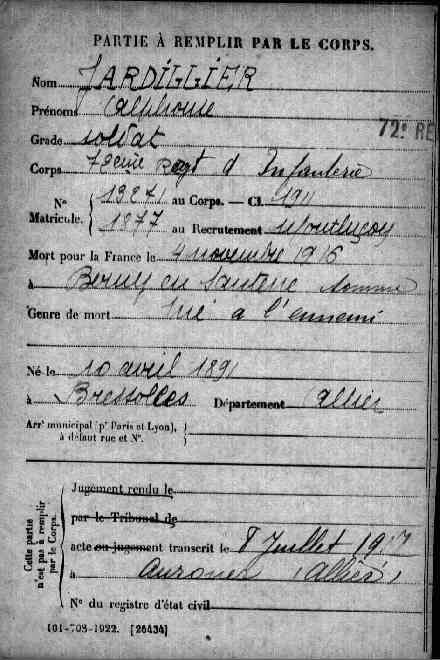 PARTIE À REMPLIR PAR LE CORPS.
Nom JARDILLIER
Prénoms Alphonse
Grade soldat
72e RE
Corps 72eme Regt d Infanterie
N° 13271 au Corps. — Cl. 1911
Matricule. 1877 au Recrutement Montluçon
Mort pour la France le 4 novembre 1916
à Berny en Santerre Somme
Genre de mort Tué a l'ennemi
Né le 10 avril 1891
à Bressolles Département Allier
Arr^t municipal (p^r Paris et Lyon), à défaut rue et N°.
Cette partie n'est pas à remplir par le Corps.
Jugement rendu le
par le Tribunal de
acte ou jugement transcrit le 8 Juillet 1917
à Aurouer (Allier)
N° du registre d'état civil
101-708-1922. [26434]